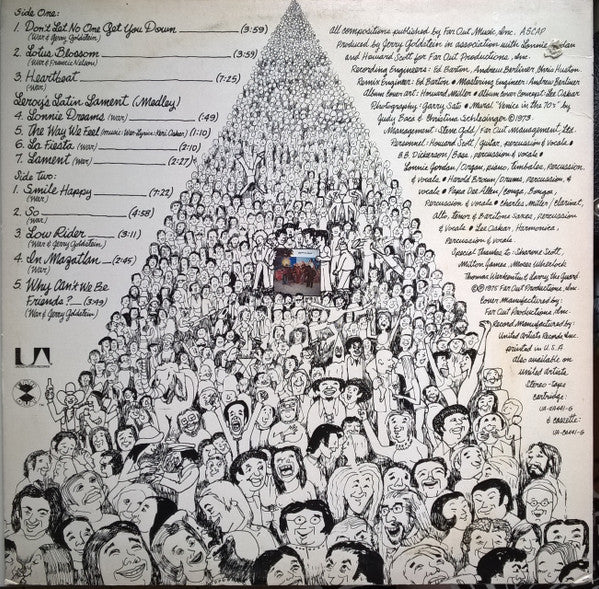 Side One:
1. Don't Let No One Get You Down (3:59)
(War & Jerry Goldstein)
2. Lotus Blossom (3:59)
(War & Francis Nelson)
3. Heartbeat (7:25)
(War)
Leroy's Latin Lament (Medley)
4. Lonnie Dreams (War) (:49)
5. The Way We Feel (Music: War Lyrics: Keri Oskar) (1:10)
6. La Fiesta (War) (1:10)
7. Lament (War) (2:27)
Side two:
1. Smile Happy (7:22)
(War)
2. So (4:58)
(War)
3. Low Rider (3:11)
(War & Jerry Goldstein)
4. In Mazatlan (2:45)
(War)
5. Why Can't We Be
Friends? (3:49)
(War & Jerry Goldstein)
UA
UNITED ARTISTS RECORDS
All compositions published by Far Out Music, Inc. ASCAP
Produced by Jerry Goldstein in association with Lonnie Jordan
and Howard Scott for Far Out Productions, Inc.
Recording Engineers: Ed Barton, Andrew Berliner, Chris Huston
Remix Engineer: Ed Barton • Mastering Engineer: Andrew Berliner
Album Cover Art: Howard Miller • Album Cover Concept: Lee Oskar
Photography: Garry Sato • Mural "Venice in the 70's" by
Judy Baca & Christina Schlesinger © 1973.
Management: Steve Gold, Far Out Management, Ltd.
Personnel: Howard Scott/Guitar, percussion & vocals •
B.B. Dickerson/Bass, percussion & vocals •
Lonnie Jordan/Organ, piano, timbales, percussion,
& vocals • Harold Brown/Drums, percussion, &
vocals • Papa Dee Allen/Conga, Bongos,
Percussion & vocals • Charles Miller/Clarinet,
Alto, Tenor & Baritone Saxes, Percussion
& Vocals • Lee Oskar, Harmonica,
Percussion & vocals.
Special Thanks to: Sharone Scott,
Milton James, Moses Wheelock
Thomas Werkentin & Larry the Guard
©℗ 1975 Far Out Productions, Inc.
Cover Manufactured by:
Far Out Productions, Inc.
Record Manufactured by:
United Artists Records, Inc.
printed in U.S.A.
also available on
United Artists
Stereo-tape
cartridge:
UA-EA441-G
& cassette:
UA-CA441-G